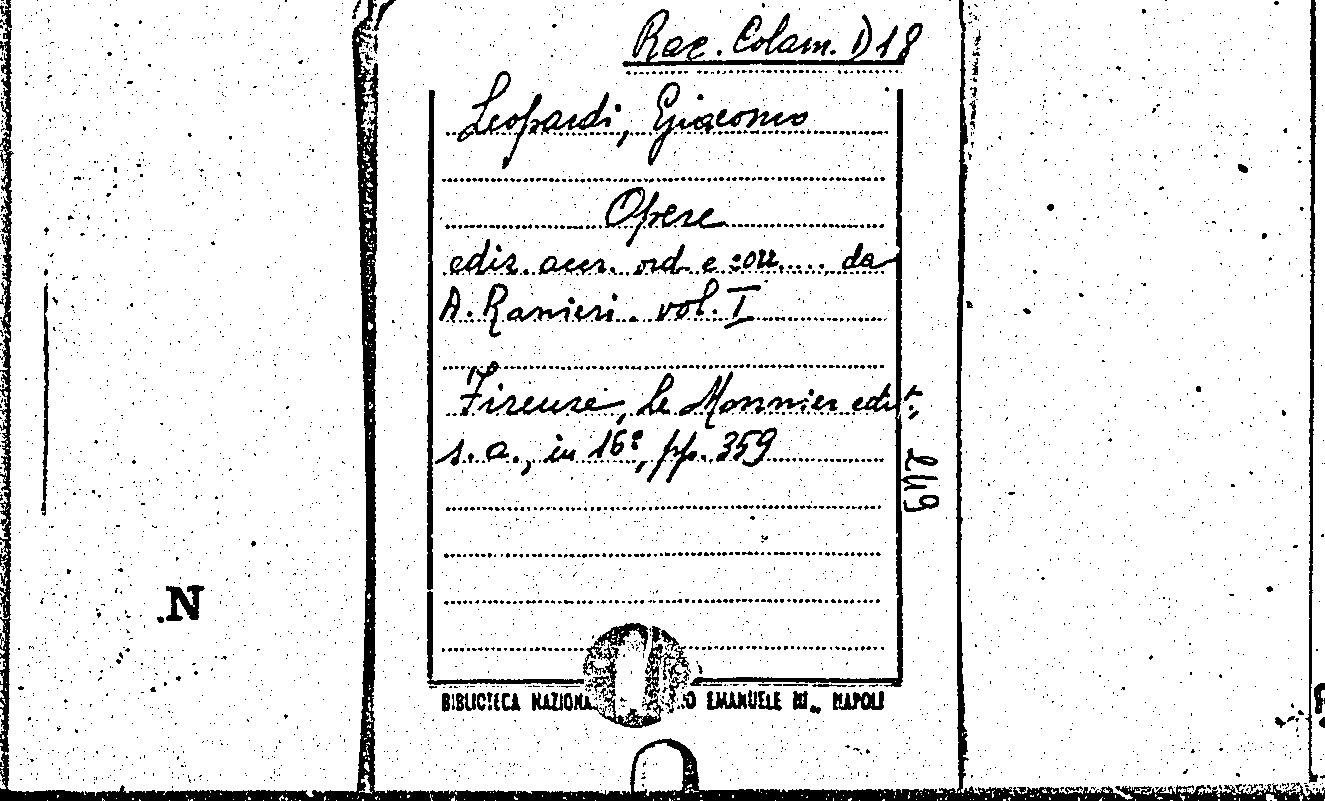 Rac. Colam. D 18
Leopardi, Giacomo
Opere
ediz. accr. ord. e corr..... da
A. Ranieri. vol. I
Firenze, Le Monnier edit.,
s. a., in 16º, pp. 359
249
.N
BIBLIOTECA O EMANUELE III„ NAPOLI